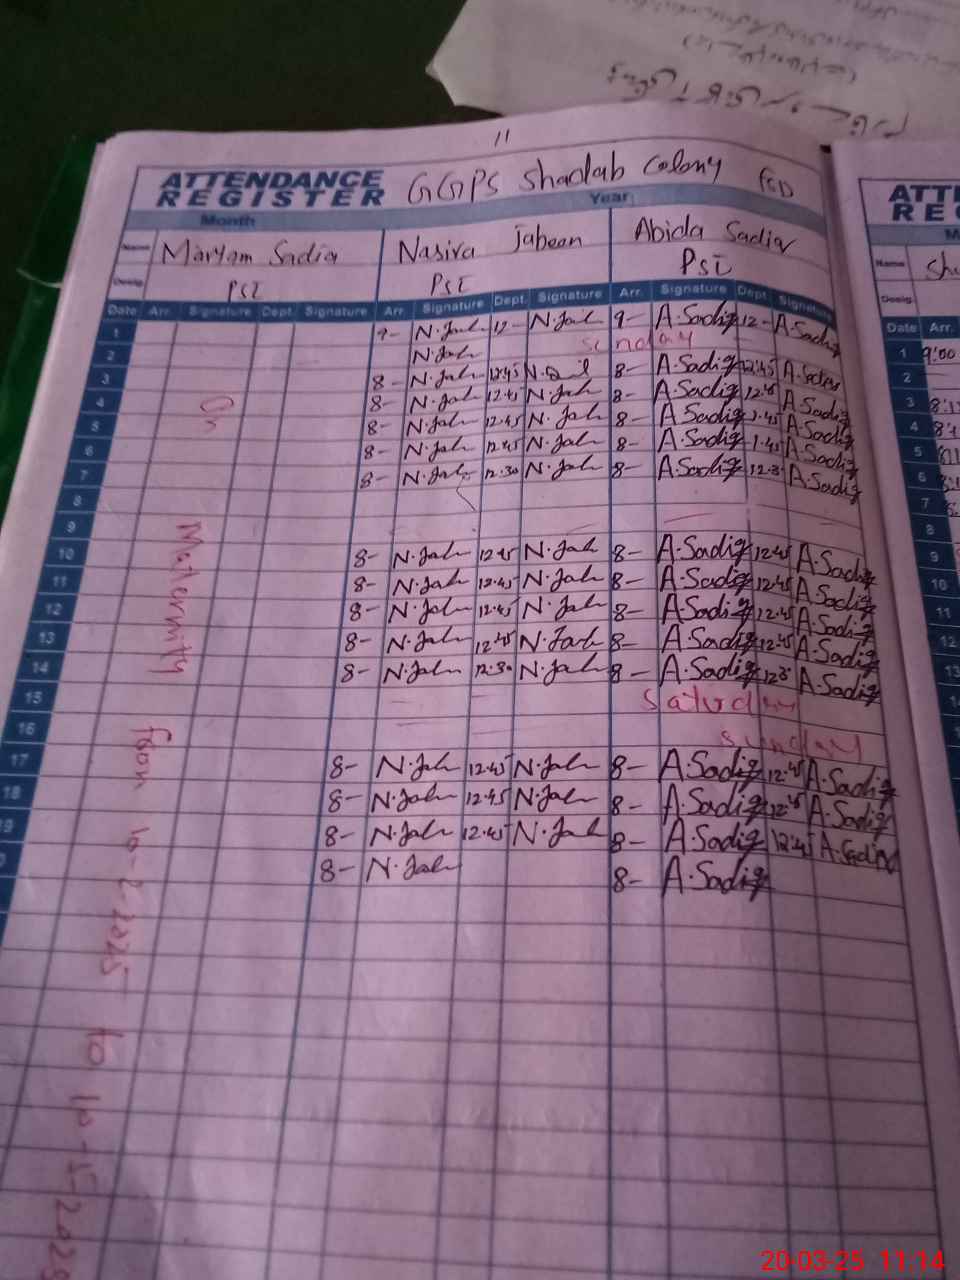 11
ATTENDANCE REGISTER GGPS Shadab Colony FSD
Month Year
Name Maryam Sadia Nasira Jabeen Abida Sadiq
Desig. PST PST PST
Date Arr. Signature Dept. Signature Arr. Signature Dept. Signature Arr. Signature Dept. Signature
1 9- N.Jah 12- N.Jah 9- A.Sadiq 12- A.Sadiq
2 N.Jah sunday
3 8- N.Jah 12:45 8- A.Sadiq 12:45
4 8- N.Jah 12.45 N.Jah 8- A.Sadiq 12.45 A.Sadiq
5 8- N.Jah 12.45 N.Jah 8- A.Sadiq 1.45 A.Sadiq
6 8- N.Jah 12.45 N.Jah 8- A.Sadiq 1.45 A.Sadiq
7 8- N.Jah 12.30 N.Jah 8- A.Sadiq 12.3 A.Sadiq
8
9
10 8- N.Jah 12.45 N.Jah 8- A.Sadiq 12.45 A.Sadiq
11 8- N.Jah 12.45 N.Jah 8- A.Sadiq 12.45 A.Sadiq
12 8- N.Jah 12.45 N.Jah 8- A.Sadiq 12.45 A.Sadiq
13 8- N.Jah 12.45 N.Jah 8- A.Sadiq 12.45 A.Sadiq
14 8- N.Jah 12.30 N.Jah 8- A.Sadiq A.Sadiq
15 Saturday
16 sunday
17 8- N.Jah 12.45 N.Jah 8- A.Sadiq 12.45 A.Sadiq
18 8- N.Jah 12.45 N.Jah 8- A.Sadiq A.Sadiq
19 8- N.Jah 12.45 N.Jah 8- A.Sadiq 12:45 A.Sadiq
8- N.Jah 8- A.Sadiq
On Maternity from 10-2-2025 to 10-5-2025
ATT
RE
M
Name Shu
Desig.
Date Arr.
1 9:00
2
3
4
5
6
7
8
9
10
11
12
13
20-03-25 11:14